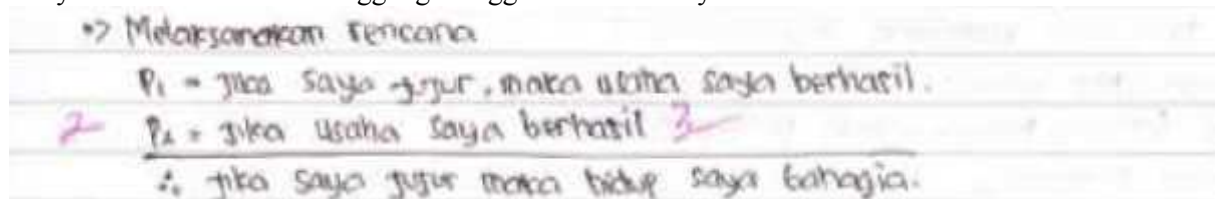 •> Melaksanakan rencana
P₁ = Jika saya jujur, maka usaha saya berhasil.
2 P₂ = Jika usaha saya berhasil 3
∴ Jika saya jujur maka hidup saya bahagia.